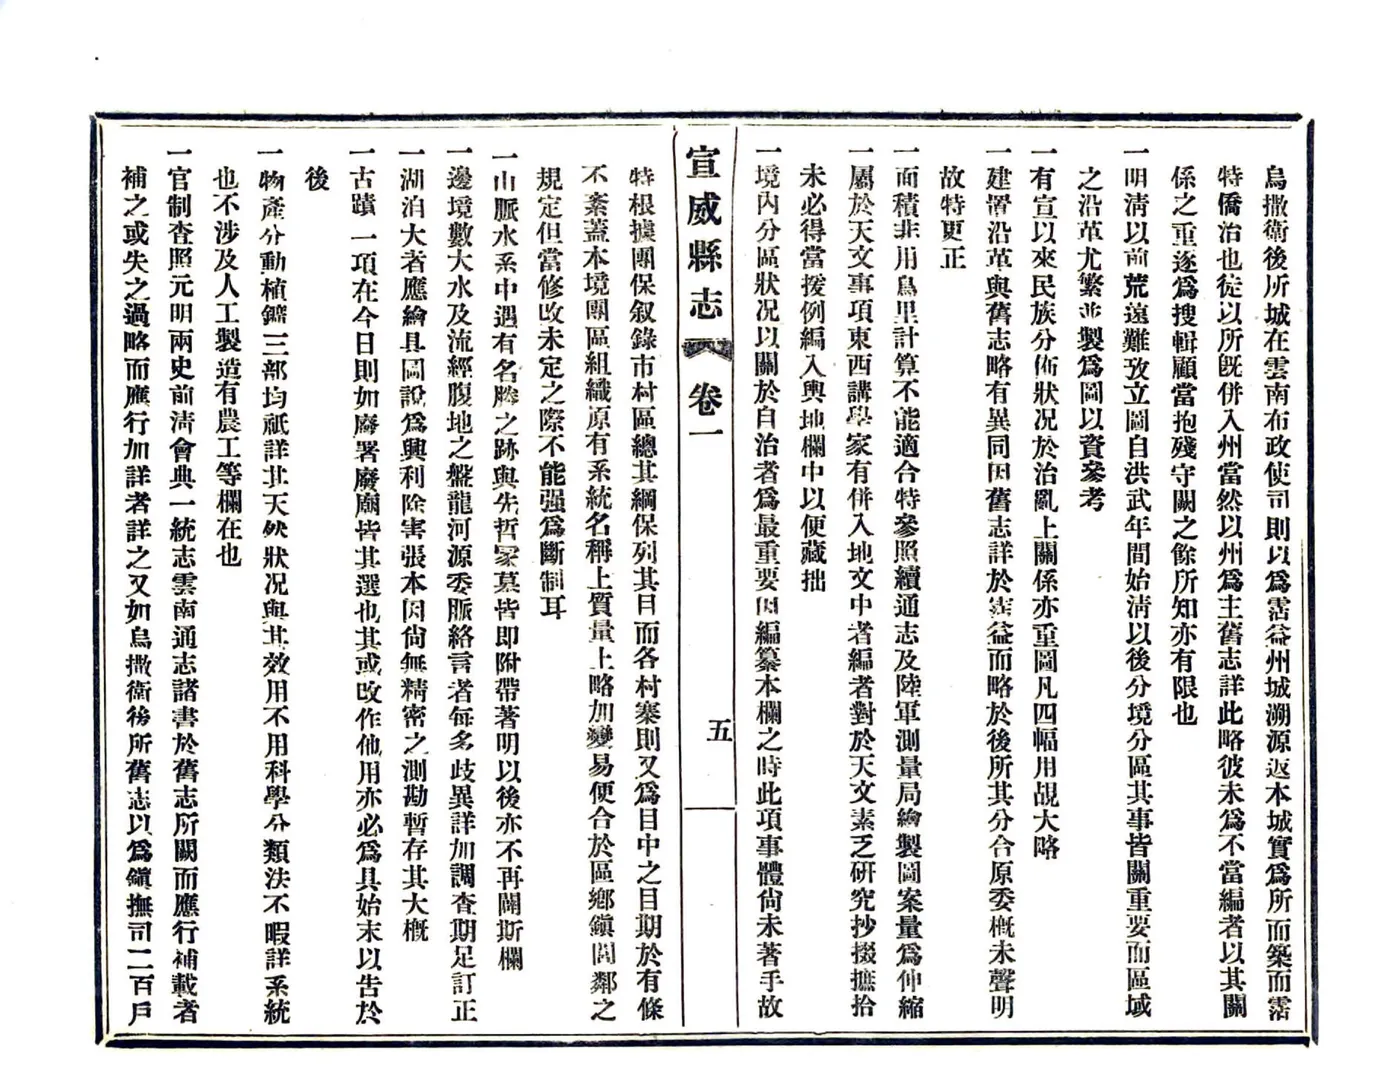 烏撒衛後所城在雲南布政使司則以爲霑益州城溯源返本城實爲所而築而霑
特僑治也徒以所旣併入州當然以州爲主舊志詳此略彼未爲不當編者以其關
係之重逐爲搜輯顧當抱殘守闕之餘所知亦有限也
一明淸以前荒遠難攷立圖自洪武年間始淸以後分境分區其事皆關重要而區域
之沿革尤繁並製爲圖以資參考
一有宣以來民族分佈狀况於治亂上關係亦重圖凡四幅用覘大略
一建置沿革與舊志略有異同因舊志詳於霑益而略於後所其分合原委槪未聲明
故特更正
一面積非用鳥里計算不能適合特參照續通志及陸軍測量局繪製圖案量爲伸縮
一屬於天文事項東西講學家有併入地文中者編者對於天文素乏研究抄掇摭拾
未必得當援例編入輿地欄中以便藏拙
一境內分區狀况以關於自治者爲最重要因編纂本欄之時此項事體尙未著手故
宣威縣志 卷一 五
特根據團保叙錄市村區總其綱保列其目而各村寨則又爲目中之目期於有條
不紊蓋本境團區組織原有系統名稱上質量上略加變易便合於區鄉鎭閭鄰之
規定但當修改未定之際不能强爲斷制耳
一山脈水系中遇有名勝之跡與先哲冢墓皆卽附帶著明以後亦不再闢斯欄
一邊境數大水及流經腹地之盤龍河源委脈絡言者每多歧異詳加調査期足訂正
一湖泊大者應繪具圖說爲興利除害張本因尙無精密之測勘暫存其大槪
一古蹟一項在今日則如廢署廢廟皆其選也其或改作他用亦必爲具始末以告於
後
一物產分動植鑛三部均祇詳其天然狀况與其效用不用科學分類法不暇詳系統
也不涉及人工製造有農工等欄在也
一官制査照元明兩史前淸會典一統志雲南通志諸書於舊志所闕而應行補載者
補之或失之過略而應行加詳者詳之又如烏撒衛後所舊志以爲鎭撫司二百戶